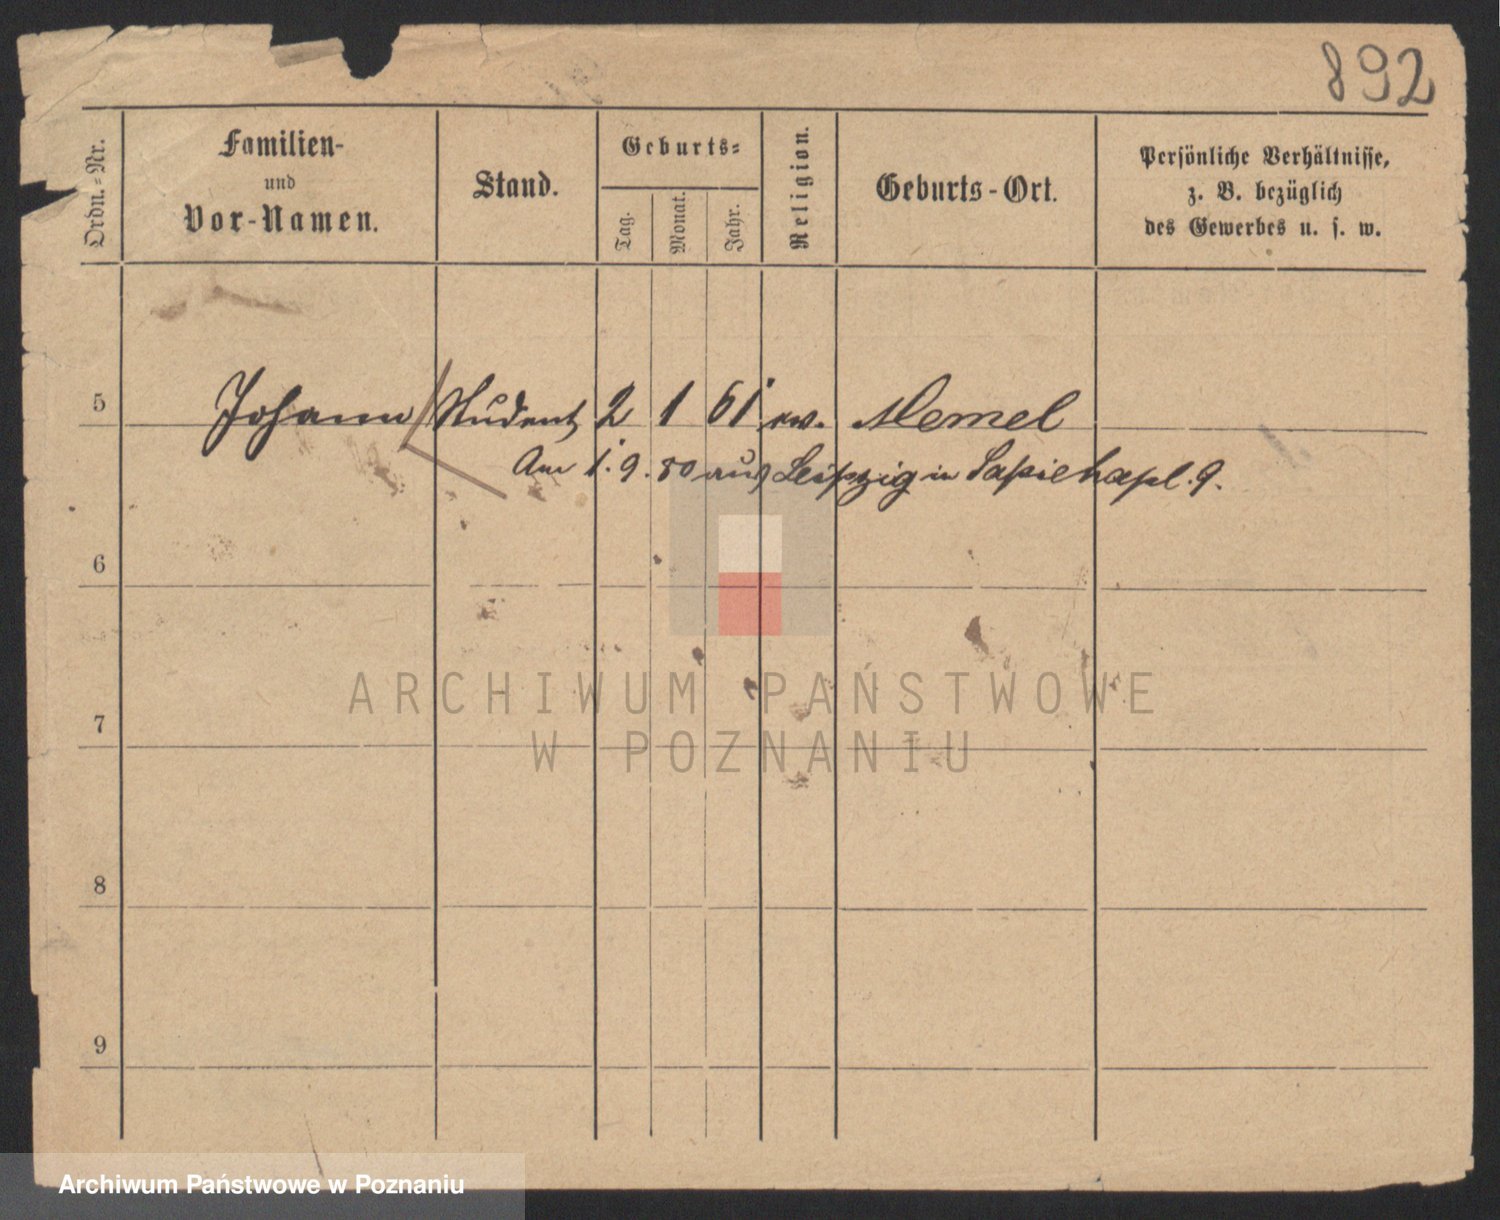 892
Ordn.-Nr.
Familien-
und
Vor-Namen.
Stand.
Geburts-
Tag.
Monat.
Jahr.
Religion.
Geburts-Ort.
Persönliche Verhältnisse,
z. B. bezüglich
des Gewerbes u. s. w.
5 Johann Student 2 1 61 ev. Memel
Am 1. 9. 80 aus Leipzig in Sapiehapl. 9.
6
7
8
9
ARCHIWUM PAŃSTWOWE
W POZNANIU
Archiwum Państwowe w Poznaniu